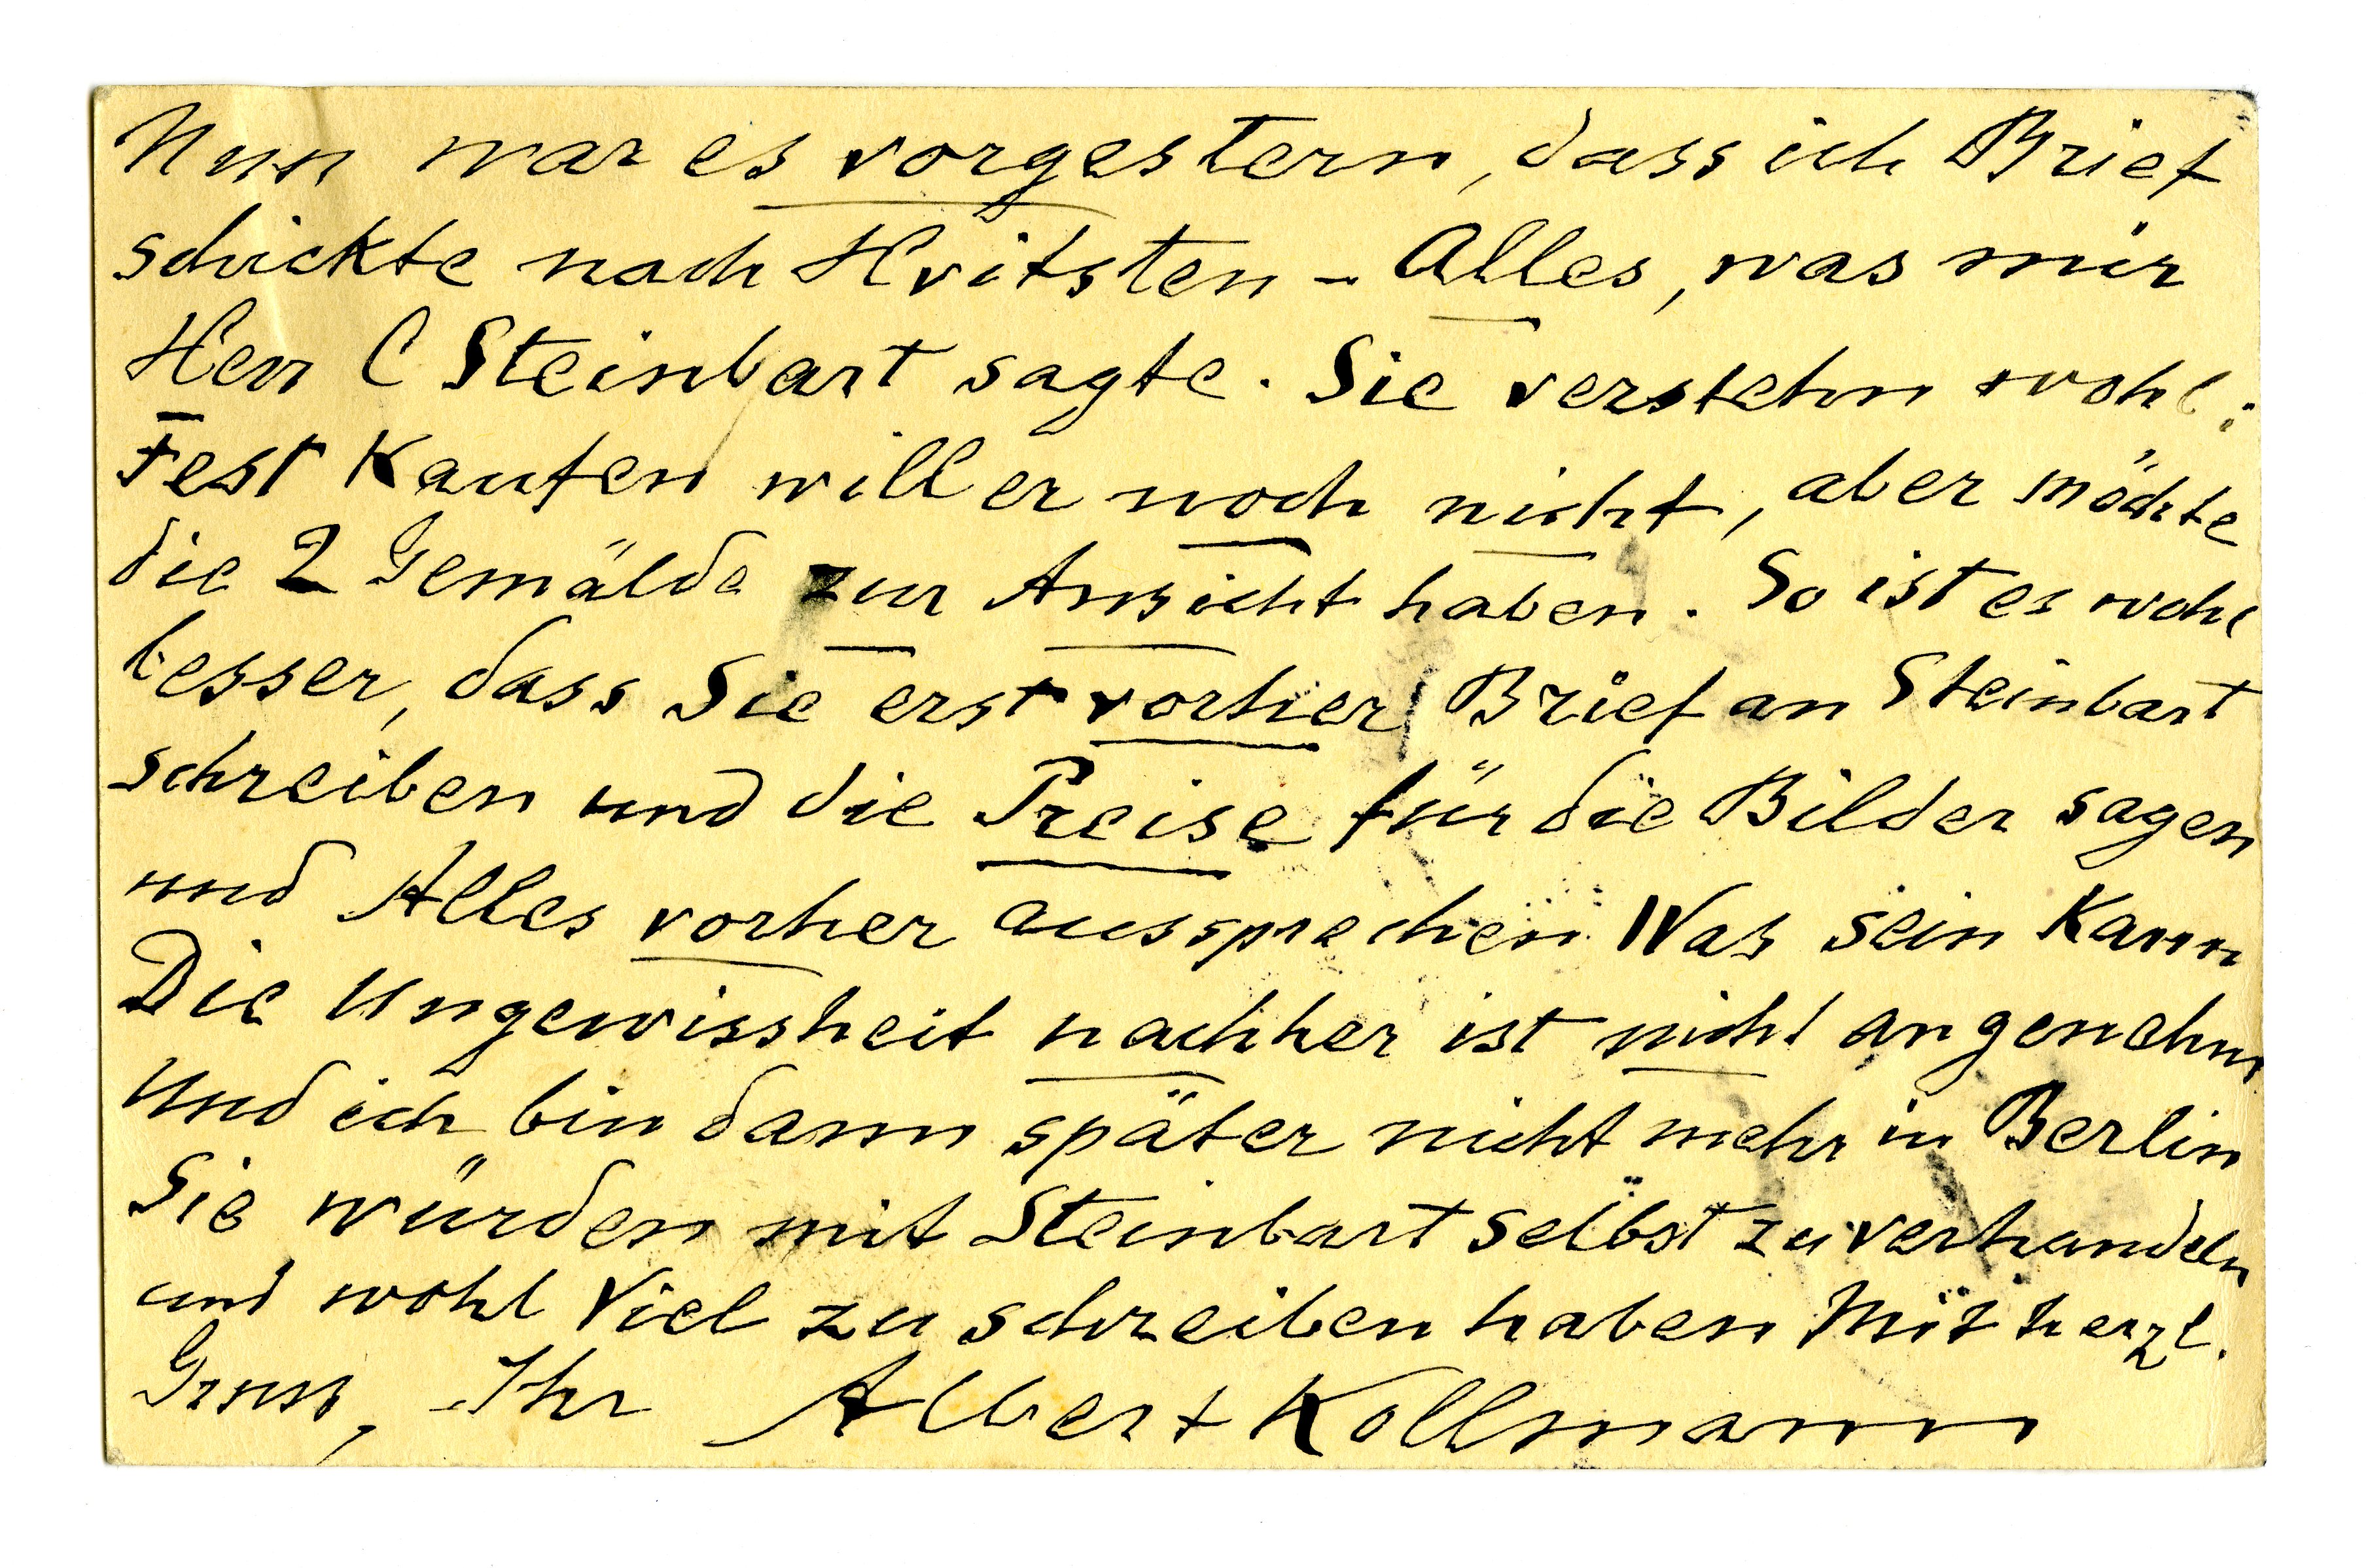 Nun war es vorgestern, dass ich Brief
schickte nach Hvitsten – Alles, was mir
Herr C Steinbart sagte. Sie verstehn wohl:
Fest Kaufen will er noch nicht, aber möchte
die 2 Gemälde zur Ansicht haben. So ist es wohl
besser, dass Sie erst vorher Brief an Steinbart
schreiben und die Preise für die Bilder sagen
und Alles vorher aussprechen Was sein Kann
Die Ungewissheit nachher ist nicht angenehm
Und ich bin dann später nicht mehr in Berlin
Sie würden mit Steinbart selbst zu verhandeln
und wohl Viel zu schreiben haben Mit herzl.
Gruss, Ihr Albert Kollmann